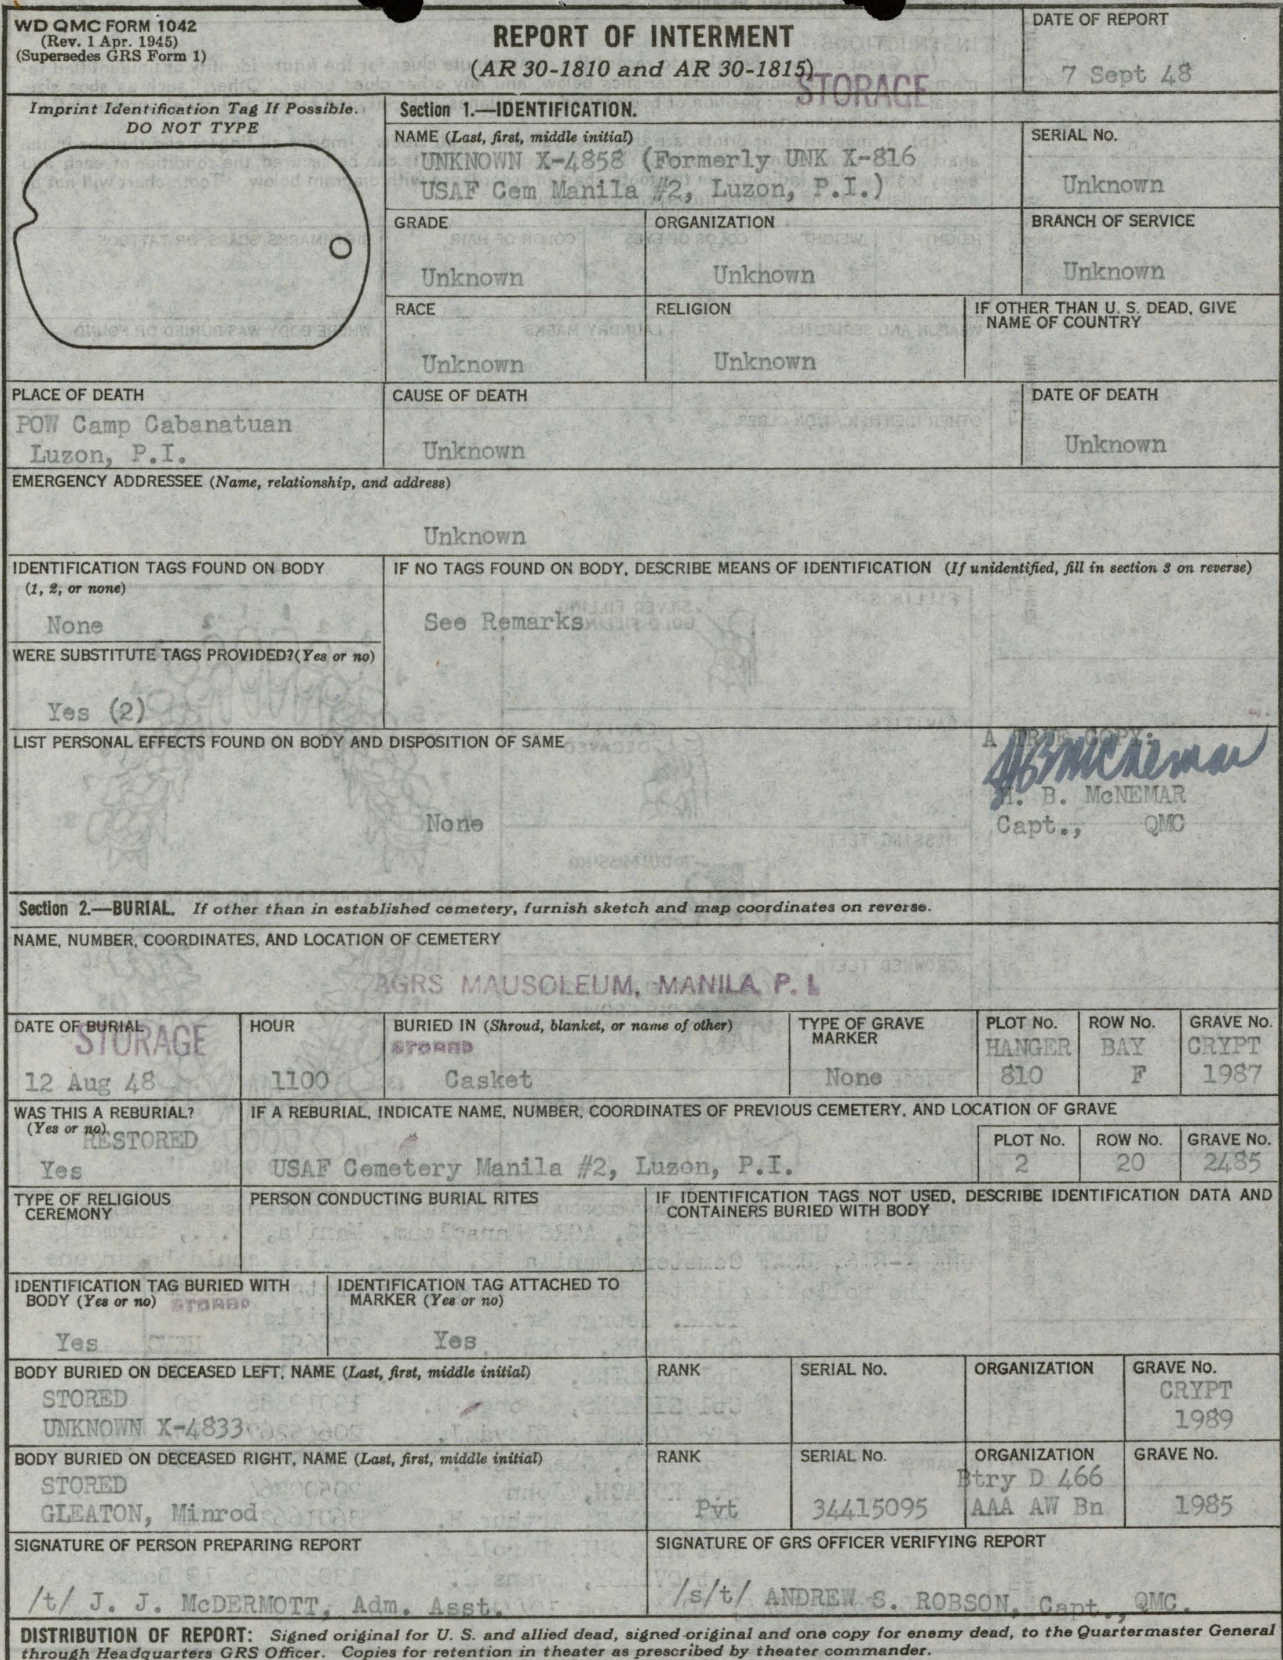 WD QMC FORM 1042
(Rev. 1 Apr. 1945)
(Supersedes GRS Form 1)
REPORT OF INTERMENT
(AR 30-1810 and AR 30-1815)
STORAGE
DATE OF REPORT
7 Sept 48
Imprint Identification Tag If Possible.
DO NOT TYPE
Section 1.—IDENTIFICATION.
NAME (Last, first, middle initial)
UNKNOWN X-4858 (Formerly UNK X-816
USAF Cem Manila #2, Luzon, P.I.)
SERIAL No.
Unknown
GRADE
Unknown
ORGANIZATION
Unknown
BRANCH OF SERVICE
Unknown
RACE
Unknown
RELIGION
Unknown
IF OTHER THAN U. S. DEAD, GIVE
NAME OF COUNTRY
PLACE OF DEATH
POW Camp Cabanatuan
Luzon, P.I.
CAUSE OF DEATH
Unknown
DATE OF DEATH
Unknown
EMERGENCY ADDRESSEE (Name, relationship, and address)
Unknown
IDENTIFICATION TAGS FOUND ON BODY
(1, 2, or none)
None
IF NO TAGS FOUND ON BODY, DESCRIBE MEANS OF IDENTIFICATION (If unidentified, fill in section 3 on reverse)
See Remarks
WERE SUBSTITUTE TAGS PROVIDED?(Yes or no)
Yes (2)
LIST PERSONAL EFFECTS FOUND ON BODY AND DISPOSITION OF SAME
None
A TRUE COPY:
H B McNemar
H. B. McNEMAR
Capt., QMC
Section 2.—BURIAL. If other than in established cemetery, furnish sketch and map coordinates on reverse.
NAME, NUMBER, COORDINATES, AND LOCATION OF CEMETERY
AGRS MAUSOLEUM, MANILA P. I.
DATE OF BURIAL
STORAGE
12 Aug 48
HOUR
1100
BURIED IN (Shroud, blanket, or name of other)
STORED
Casket
TYPE OF GRAVE
MARKER
None
PLOT No.
HANGER
810
ROW No.
BAY
F
GRAVE No.
CRYPT
1987
WAS THIS A REBURIAL?
(Yes or no)
RESTORED
Yes
IF A REBURIAL, INDICATE NAME, NUMBER, COORDINATES OF PREVIOUS CEMETERY, AND LOCATION OF GRAVE
USAF Cemetery Manila #2, Luzon, P.I.
PLOT No.
2
ROW No.
20
GRAVE No.
2485
TYPE OF RELIGIOUS
CEREMONY
PERSON CONDUCTING BURIAL RITES
IF IDENTIFICATION TAGS NOT USED, DESCRIBE IDENTIFICATION DATA AND
CONTAINERS BURIED WITH BODY
IDENTIFICATION TAG BURIED WITH
BODY (Yes or no)
STORED
Yes
IDENTIFICATION TAG ATTACHED TO
MARKER (Yes or no)
Yes
BODY BURIED ON DECEASED LEFT, NAME (Last, first, middle initial)
STORED
UNKNOWN X-4833
RANK
SERIAL No.
ORGANIZATION
GRAVE No.
CRYPT
1989
BODY BURIED ON DECEASED RIGHT, NAME (Last, first, middle initial)
STORED
GLEATON, Minrod
RANK
Pvt
SERIAL No.
34415095
ORGANIZATION
Btry D 466
AAA AW Bn
GRAVE No.
1985
SIGNATURE OF PERSON PREPARING REPORT
/t/ J. J. McDERMOTT, Adm. Asst.
SIGNATURE OF GRS OFFICER VERIFYING REPORT
/s/t/ ANDREW S. ROBSON, Capt., QMC.
DISTRIBUTION OF REPORT: Signed original for U. S. and allied dead, signed original and one copy for enemy dead, to the Quartermaster General
through Headquarters GRS Officer. Copies for retention in theater as prescribed by theater commander.